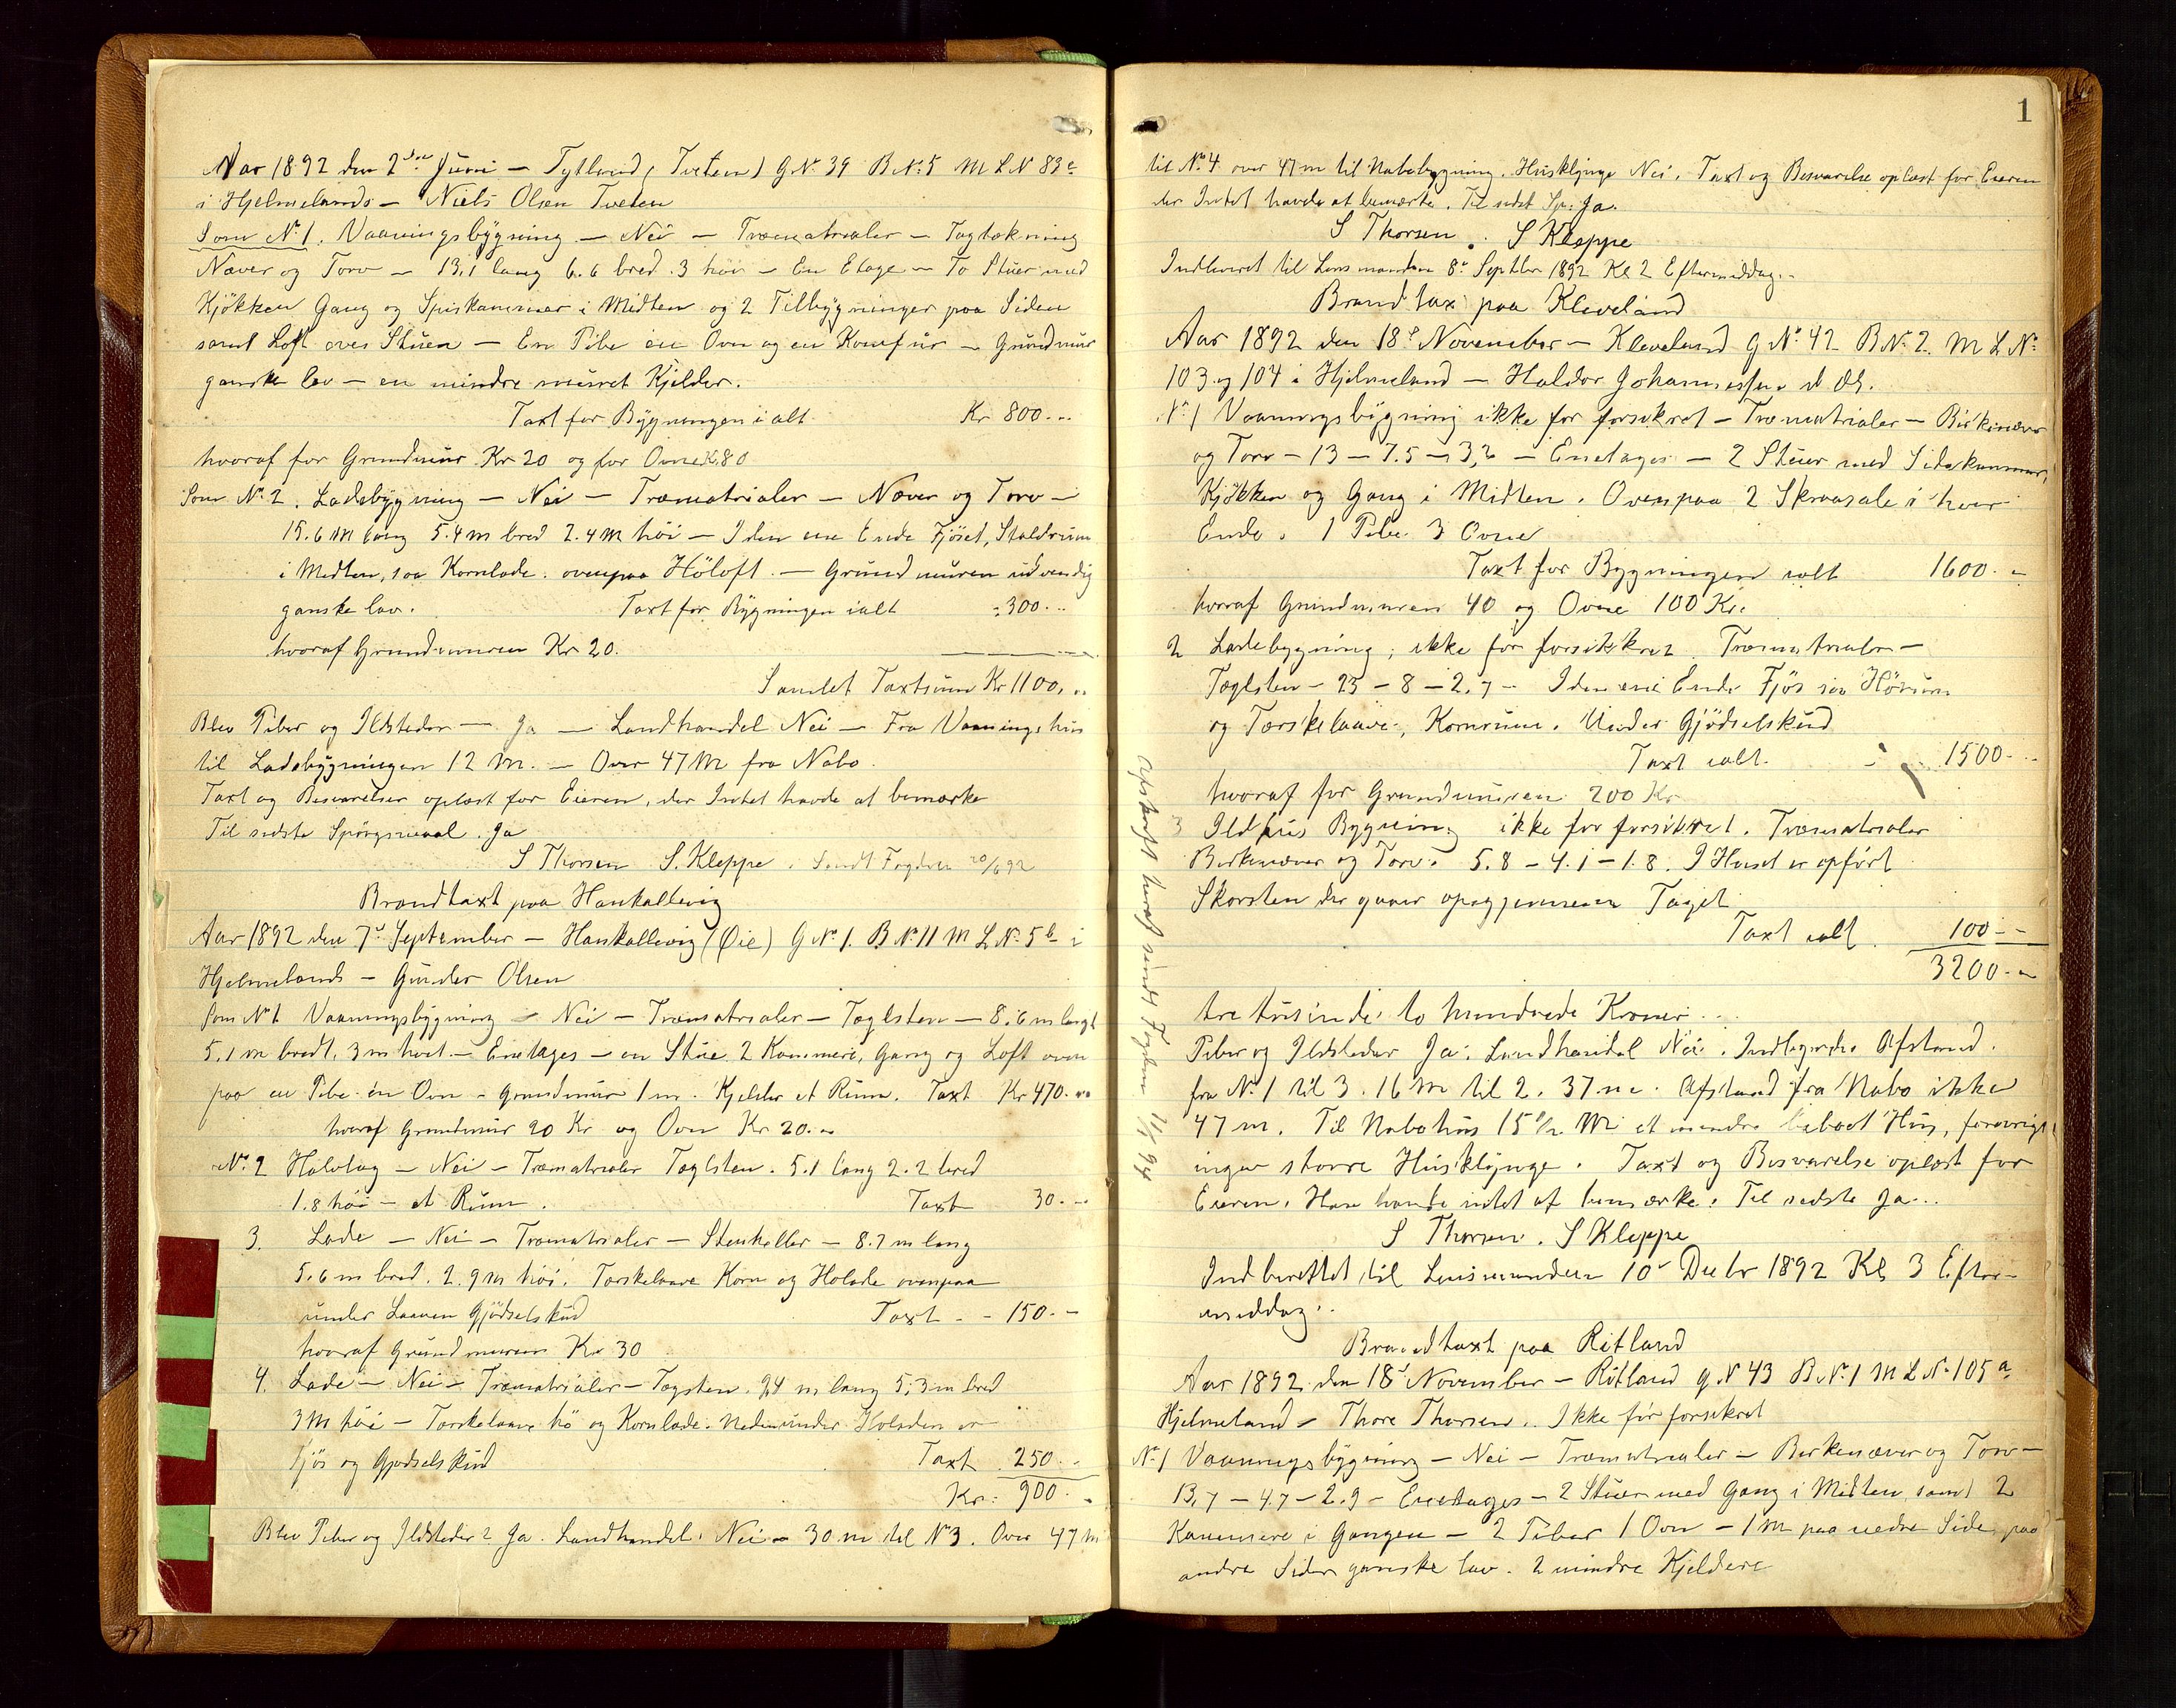 Aar 1892 den 2den Juni – Tytland (Tveten) G.No. 39 B.No. 5 M.L.N 83c
i Hjelmelands – Niels Olsen Tveten
Som No 1. Vaaningsbygning – Nei – Træmatrialer – Tagtækning
Næver og Torv – 13,1 lang 6.6 bred 3 høi – En Etage – To Stuer med
Kjøkken Gang og Spiskammer i Midten og 2 Tilbygninger paa Siden
samt Loft over Stuen – En Pibe en Ovn og en Komfur – Grundmur
ganske lav – en mindre muret Kjelder.
Taxt for Bygningen i alt Kr 800...
hvoraf for Grundmur Kr 20 og for Ovne Kr 80
Som No 2. Ladebygning – Nei – Træmatrialer – Næver og Torv –
15.6 m lang 5.4 m bred 2.4 m høi – I den ene Ende Fjöset, Staldrum
i Midten, saa Kornlade. ovenpaa Höloft. – Grundmuren udvendig
ganske lav. Taxt for Bygningen ialt - 300...
hvoraf Grundmuren Kr 20.
Samlet Taxtsum Kr 1100,..
Blev Piber og Ildsteder – Ja – Landhandel Nei – Fra Vaaningshus
til Ladebygningen 12 m. – Over 47 M fra Nabo.
Taxt og Besvarelser oplæst for Eieren, der Intet havde at bemærke
Til sidste Spörgsmaal. Ja
S Thorsen S. Kleppe. Sendt Fogden 20/6 92
Brandtaxt paa Hankallevig
Aar 1892 den 7de September – Hankallevig (Øie) G No. 1. B No. 11 M L No. 5b i
Hjelmelands – Gunder Olsen
Som No 1 Vaaningsbygning – Nei – Træmatrialer – Taglsten – 8.6 m langt
5.1 m bredt. 3 m höit. – Enetages – en Stue 2 Kammere, Gang og Loft oven
paa en Pibe en Ovn – Grundmur 1 m. Kjelder et Rum. Taxt Kr 470...
hvoraf Grundmur 20 Kr og Ovn Kr 20...
No. 2 Halvtag – Nei – Træmatrialer Taglsten. 5.1 lang 2.2 bred
1.8 höi – et Rum. Taxt 30...
3. Lade – Nei – Træmatrialer – Stenheller – 8.7 m lang
5.6 m bred. 2.9 m höi. Tærskelaave Korn og Hölade ovenpaa
under Laaven Gjödselskud Taxt - - 150.-
hvoraf Grundmuren Kr 30
4. Lade – Nei – Træmatrialer – Tagsten. 9,4 m lang 5,3 m bred
3 M höi – Tærskelaave hö og Kornlade. Nedenunder Höladen er
fjös og Gjödselskud Taxt 250..
Kr. 900..
Blev Piber og Ildsteder? Ja. Landhandel. Nei – 30 m til N 3. Over 47 m
1
til No. 4 over 47 m til Nabobygning. Husklynge Nei. Taxt og Besvarelse oplæst for Eieren
der Intet havde at bemærke. Til sidst Sp: Ja.
S Thorsen. S Kleppe
Indleveret til Lensmanden 8de Septbr 1892 Kl 2 Eftermiddag.
Brandtaxt paa Kleveland
Aar 1892 den 18de November – Kleveland G No. 42 B No. 2. M L No.
103 og 104 i Hjelmeland – Haldor Johannessen
No. 1 Vaaningsbygning ikke før forsikret – Træmatrialer – Birkenæver
og Torv – 13 – 7.5 – 3,2 – Enetages – 2 Stuer med Sidekammer,
Kjökken og Gang i Midten. Ovenpaa 2 Skraasale i hver
Ende. 1 Pibe. 3 Ovne
Taxt for Bygningen ialt 1600.-
hvoraf Grundmuren 40 og Ovne 100 Kr.
2 Ladebygning, ikke før forsikkret Træmatrialer –
Taglsten – 23 – 8 – 2.7 – I den ene Ende Fjös saa Hörum
og Tærskelaave, Kornrum. Under Gjödselskud
Taxt ialt. 1500...
hvoraf for Grundmuren 200 Kr
3 Ildhus Bygning ikke før forsikret. Træmatrialer
Birkenæver og Torv. 5.8 – 4.1 – 1.8. I Huset er opfört
Skorsten der gaar opigjennem Taget
Taxt ialt 100 - -
3200.-
tre tusinde to hundrede Kroner...
Piber og Ildsteder Ja. Landhandel Nei. Indbyrdes Afstand.
fra No. 1 til 3. 16 m til 2. 37 m. Afstand fra Nabo ikke
47 m. Til Nabohus 15 1/2 M et mindre beboet Hus, forövrigt
ingen större Husklynge. Taxt og Besvarelse oplæst for
Eieren. Han havde intet at bemærke. Til sidste Ja...
S Thorsen. S Kleppe
Indberettet til Lensmanden 10de Decbr 1892 Kl 3 Efter-
middag.
Brandtaxt paa Ritland
Aar 1892 den 18de November – Ritland G N 43 B No. 1 M L No. 105a
Hjelmeland – Thore Thorsen. Ikke før forsikret
No. 1 Vaaningsbygning – Nei – Træmatrialer – Birkenæver og Torv –
13,7 – 4.7 – 2.9 – Enetages – 2 Stuer med Gang i Midten, samt 2
Kammere i Gangen – 2 Piber 1 Ovn – 1 m paa nedre Side, paa
andre Sider ganske lav. 2 mindre Kjeldere
Afskrift heraf sendt Fogden